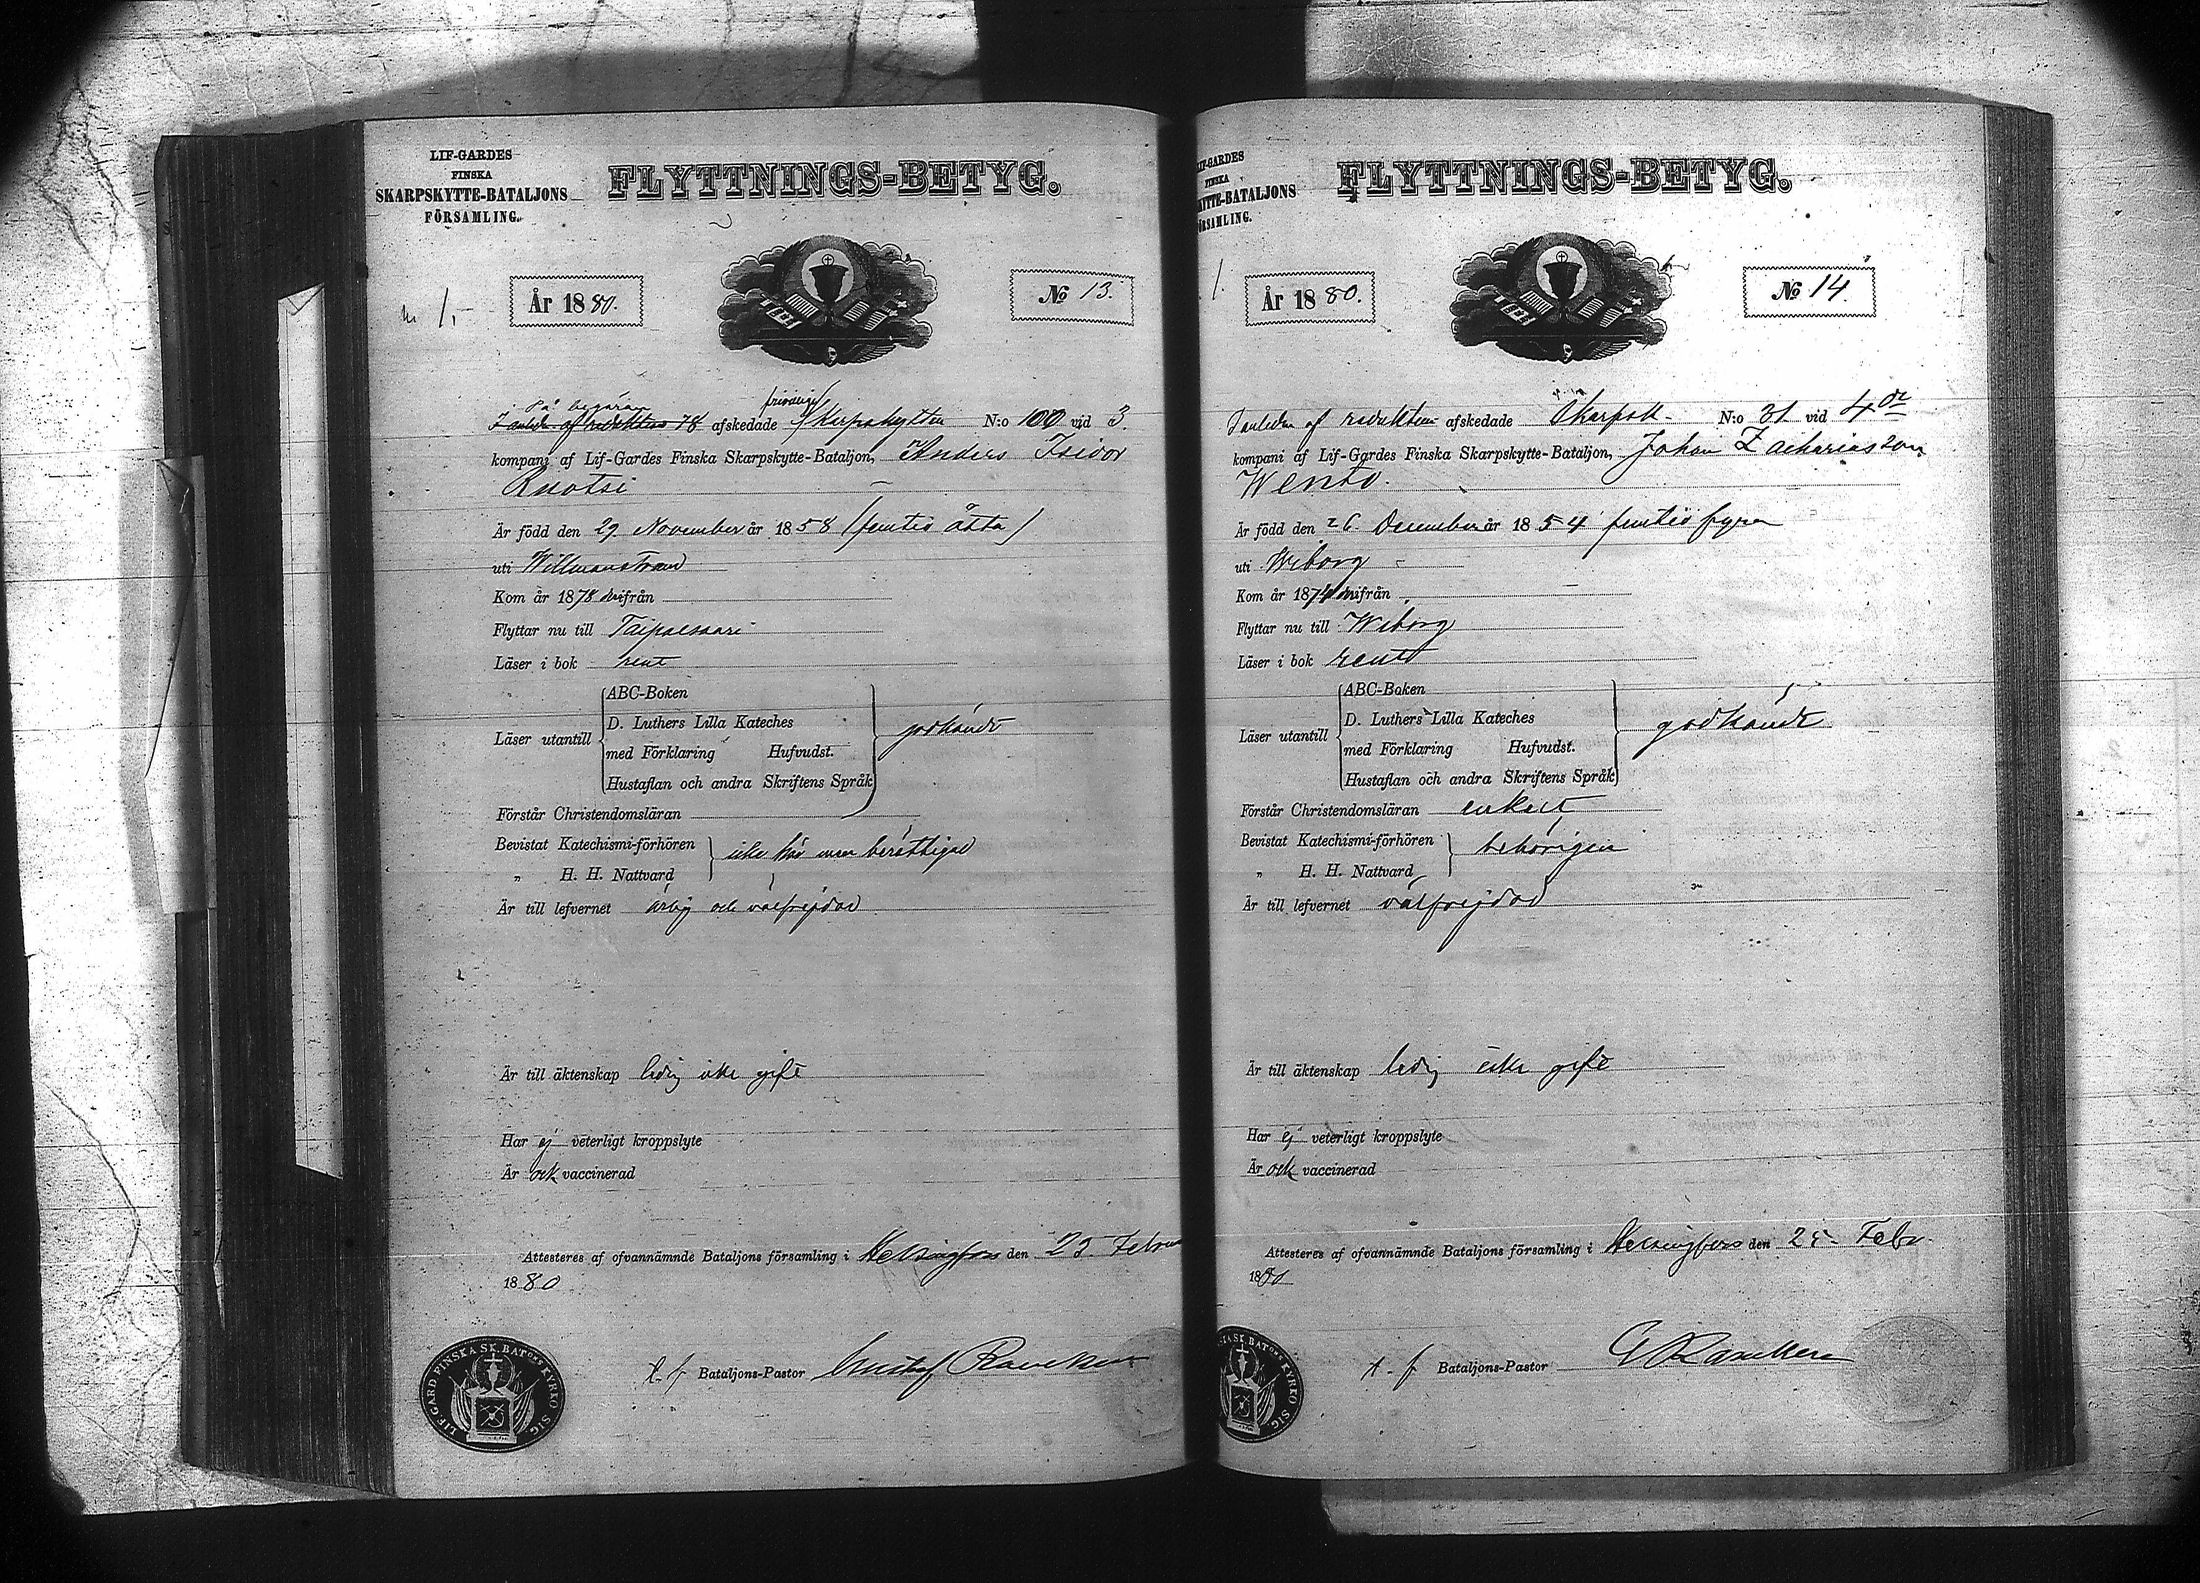 LIF-GARDES
FINSKA
SKARPSKYTTE-BATALJONS
FÖRSAMLING.
FLYTTNINGS-BETYG.
1,-
År 1880.
No 13.
På begäran
afskedade frivillige Skarpskytten N:o 100 vid 3.
kompani af Lif-Gardes Finska Skarpskytte-Bataljon, Anders Isidor
Ruotsi
Är född den 29 November år 1858 (femtio åtta)
uti Willmanstrand
Kom år 1878 från
Flyttar nu till Taipalsaari
Läser i bok rent
Läser utantill
ABC-Boken
D. Luthers Lilla Kateches
med Förklaring Hufvudst.
Hustaflan och andra Skriftens Språk
godkändt
Förstår Christendomsläran
Bevistat Katechismi-förhören
" H. H. Nattvard
berättigad
Är till lefvernet ärlig och välfrejdad
Är till äktenskap ledig icke gift
Har ej veterligt kroppslyte
Är ock vaccinerad
Attesteres af ofvannämnde Bataljons församling i Helsingfors den 25 Februa
1880
t. f. Bataljons-Pastor Gustaf
LIF GARD FINSKA SK. BATONS KYRKO SIG.
LIF-GARDES
FINSKA
KYTTE-BATALJONS
ÖRSAMLING.
FLYTTNINGS-BETYG.
1.
År 1880.
No 14.
I anledn af reduktion afskedade Skarpsk. N:o 31 vid 4de
kompani af Lif-Gardes Finska Skarpskytte-Bataljon, Johan Zachariasson
Wento.
Är född den 26 December år 1854 femtio fyra
uti Wiborg
Kom år 187 från
Flyttar nu till Wiborg
Läser i bok rent
Läser utantill
ABC-Boken
D. Luthers Lilla Kateches
med Förklaring Hufvudst.
Hustaflan och andra Skriftens Språk
godkändt
Förstår Christendomsläran enkelt
Bevistat Katechismi-förhören
" H. H. Nattvard
behörigen
Är till lefvernet välfrejdad
Är till äktenskap ledig icke gift
Har ej veterligt kroppslyte
Är ock vaccinerad
Attesteres af ofvannämnde Bataljons församling i Helsingfors den 25 Febr.
1880
t. f. Bataljons-Pastor
SKA SK. BATONS KYRKO SIG.